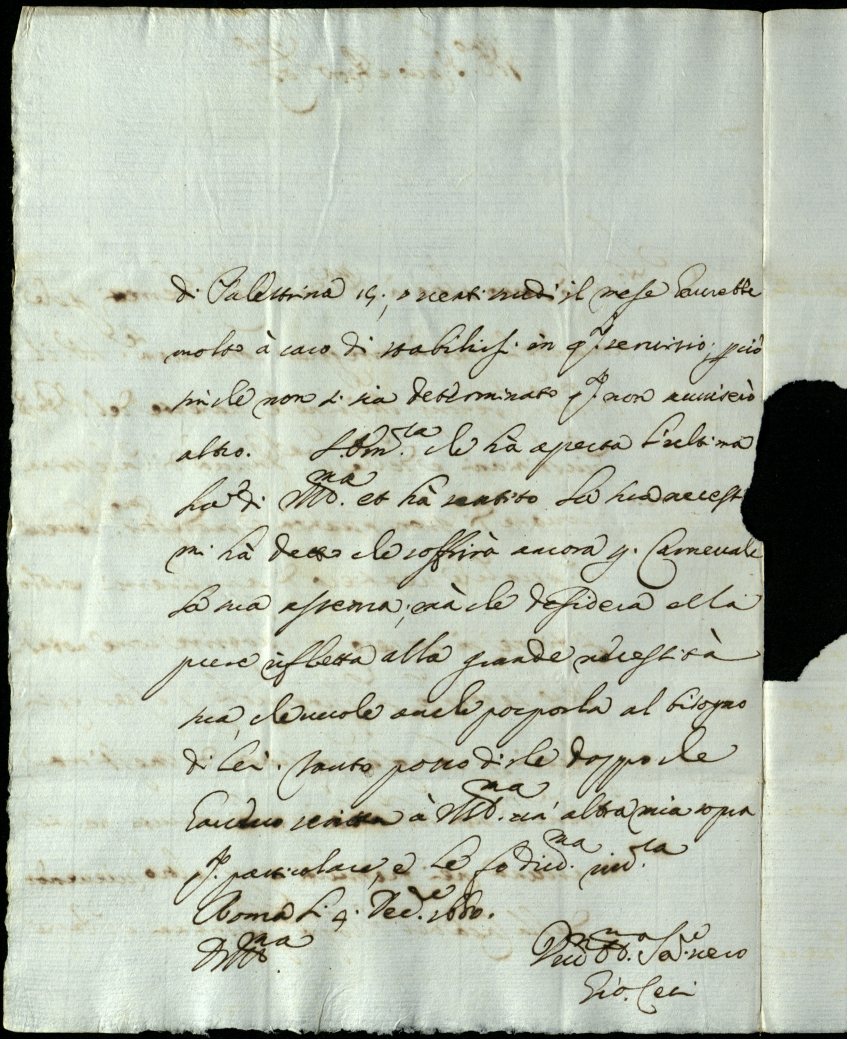 di Palestrina 19, e venti scudi il mese havrebbe
molto à caro di stabilirsi in q.to servitio; p ciò
finche non si sia determinato q.to non avviserò
altro. S. Em.za che hà aperta l'ultima
sua di VS. Ill.ma et hà sentito la sua necess
mi hà detto che soffrirà ancora q. Carnevale
la sua assenza; mà che desidera ella
pure rifletta alla grande necessità
sua, che vuole anche posporla al bisogno
di lei. Tanto posso dirle doppo che
havevo scritto à VS. Ill.ma un' altra mia sopra
q.to particolare, e le fo div.ma riv.za
Roma li 4. Dec.e 1680.
D VS. Ill.ma
Div.mo et Obb.mo Ser.e vero
Gio. Ceri